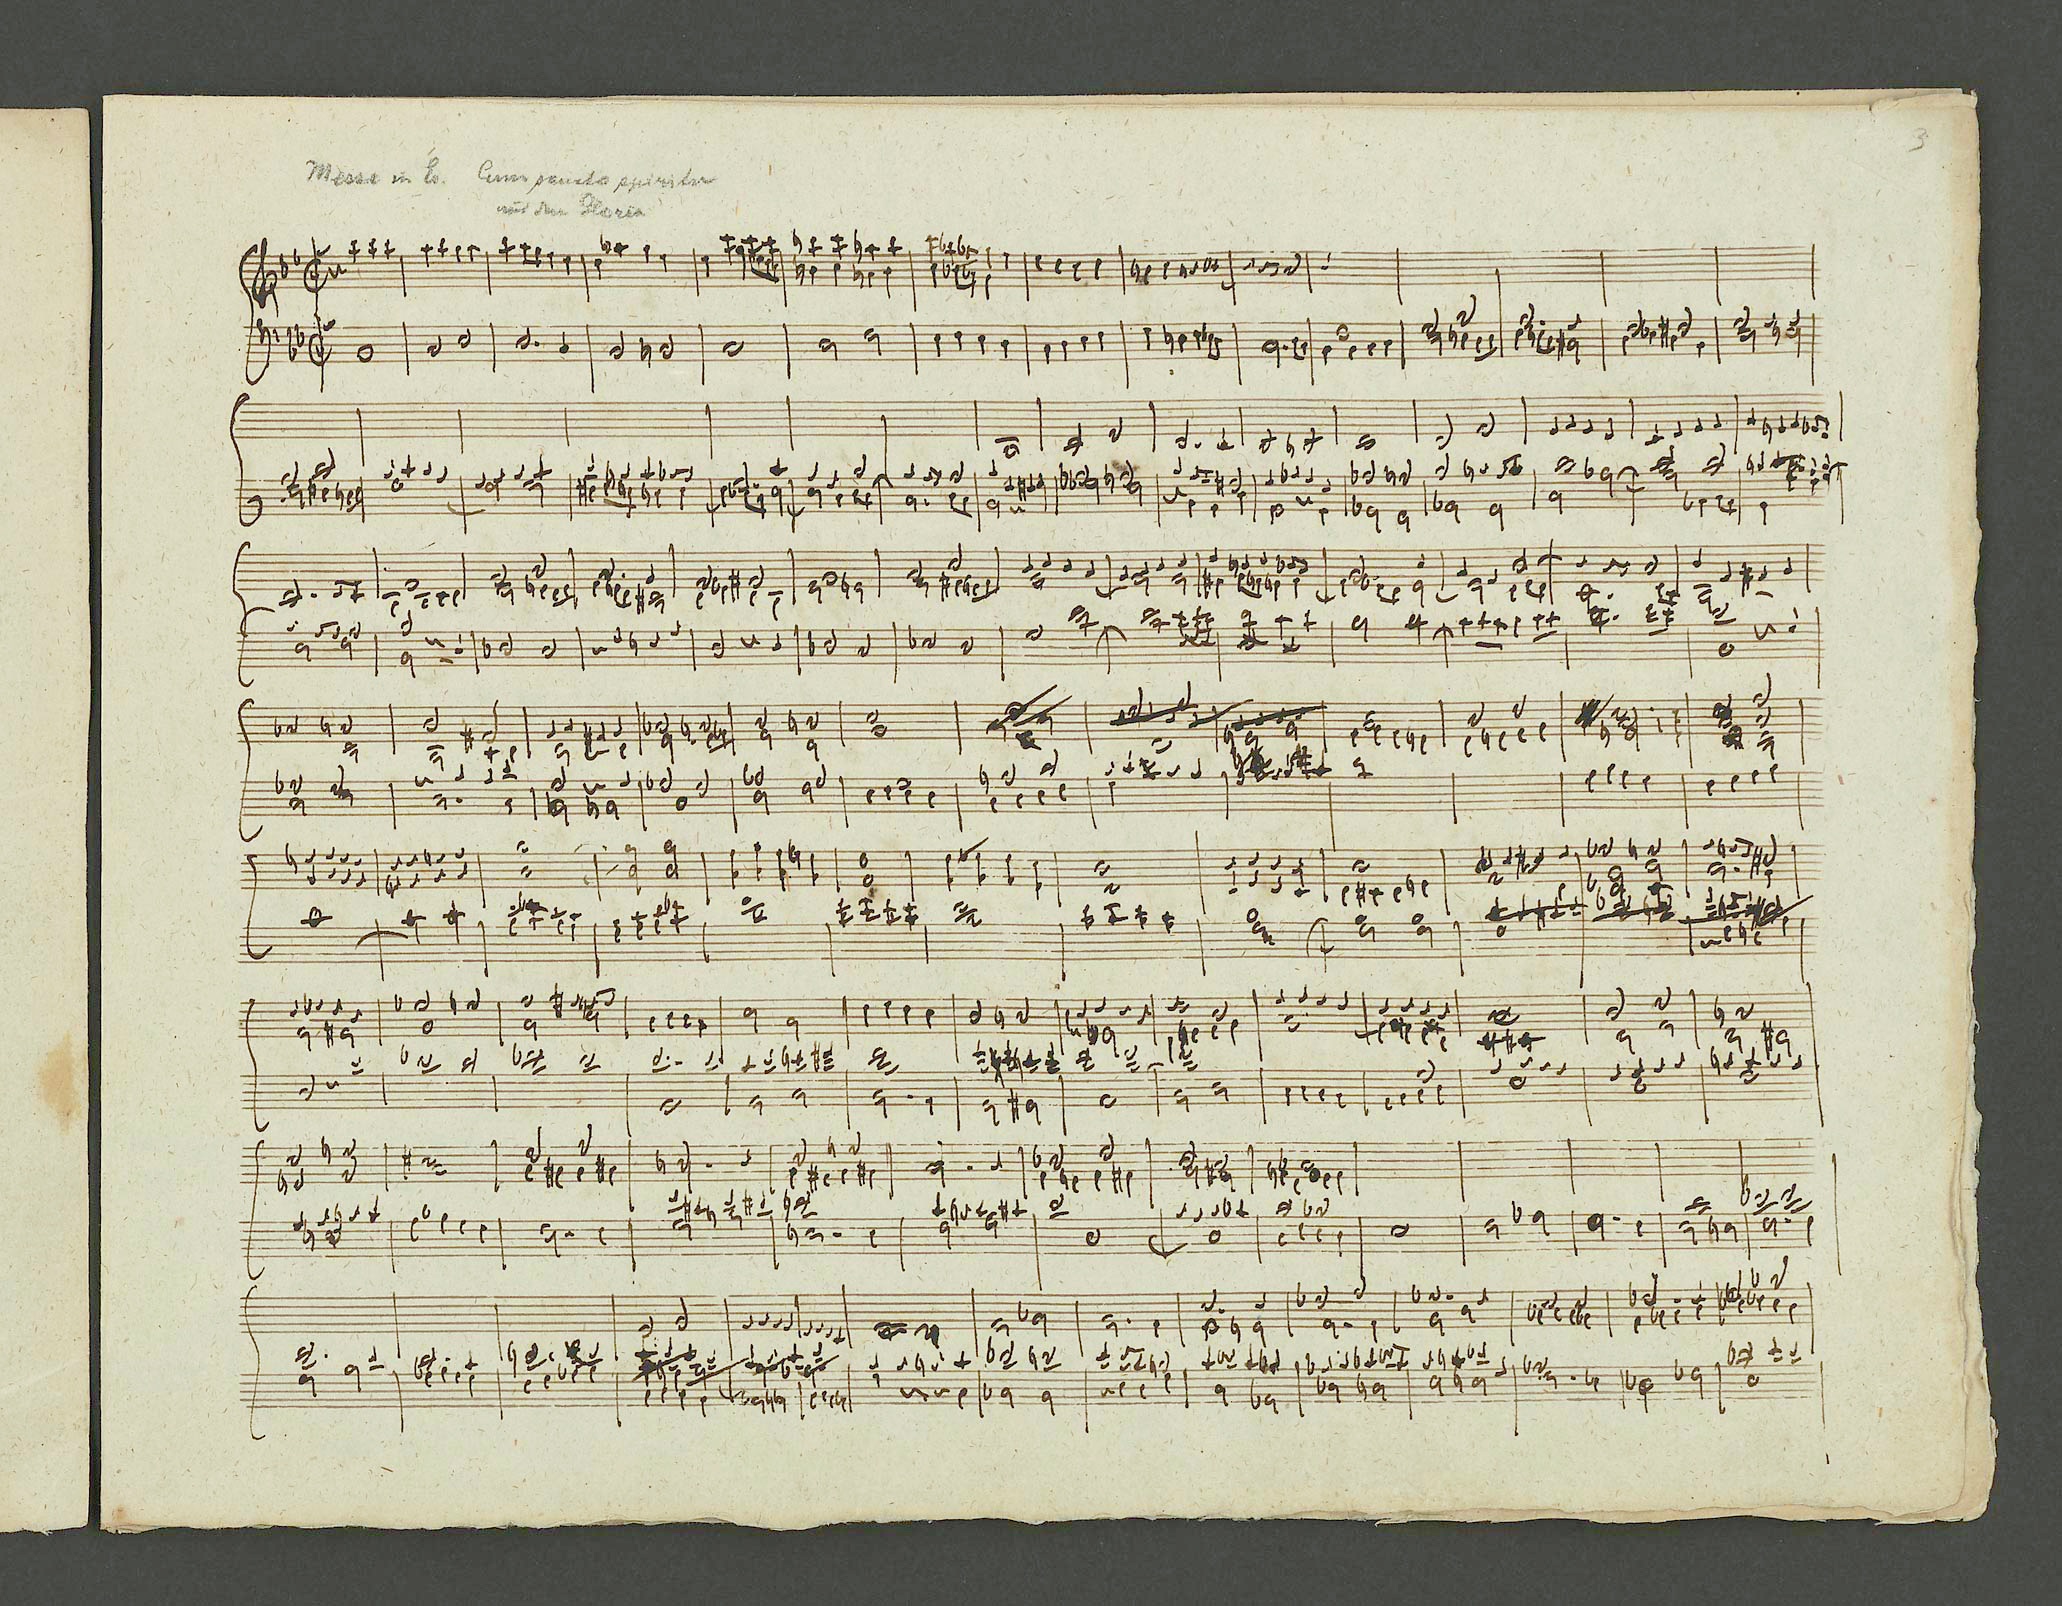 3
Messe in Es. Cum sancto spiritu
aus dem Gloria